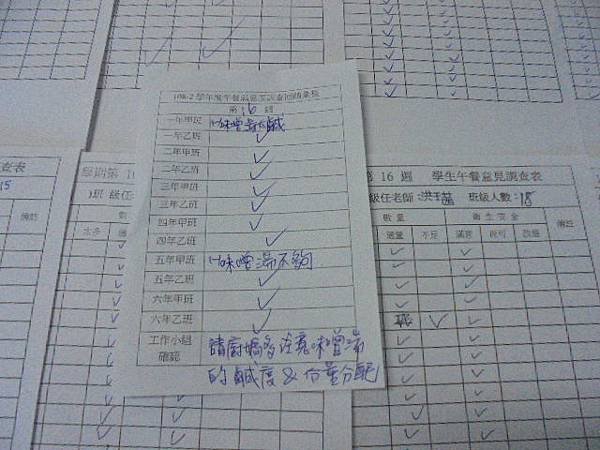 學年度午餐意見調查回饋彙整
第 16 週
一年甲班 味噌湯太鹹
一年乙班 ✓
二年甲班 ✓
二年乙班 ✓
三年甲班 ✓
三年乙班 ✓
四年甲班 ✓
四年乙班 ✓
五年甲班 味噌湯不夠
五年乙班 ✓
六年甲班 ✓
六年乙班 ✓
工作小組
確認
請廚媽多注意味噌湯
的鹹度 & 份量分配
查表
學期第 16
班 級任
太多 適
第 16 週 學生午餐意見調查表
級任老師: 班級人數:18
數量 衛生安全 備註
適量 不足 滿意 尚可